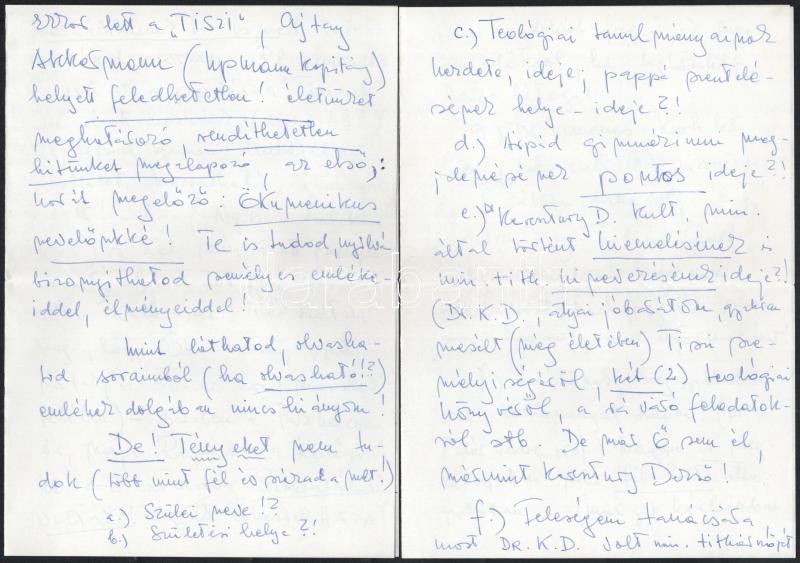 lett a „TISZI”, Ajtay
Akkermann (Upmann Kapitány)
helyett feledhetetlen! életünket
meghatározó, rendíthetetlen
hitünket megalapozó, az első,:
korát megelőző: Ökumenikus
nevelőnkké! Te is tudod, nyilván
bizonyíthatod személyes emléke-
iddel, élményeiddel!
Mint láthatod, olvasha-
tod soraimból (ha olvasható!!?)
emlékek dolgában nincs hiányom!
De! Tényeket nem tu-
dok (több mint fél évszázada múlt!)
a.) Szülei neve!?
b.) Születési helye?!
c.) Teológiai tanulmányainak
kezdete, ideje; pappá szentelé-
sének helye - ideje?!
d.) Aspid gimnázium meg-
pontos ideje?!
e.) Keresztury D. kult. min.
által történt kiemelésének és
min. titk. kinevezésének ideje?!
(Dr. K.D., atyai jóbarátom, gyakran
mesélt (még életében) Tiszi sze-
mélyiségéről, két (2) teológiai
könyvéről a rá váró feladatok-
ról stb. De már Ő sem él,
mármint Keresztury Dezső!
f.) Feleségem tanácsára
most DR. K.D. volt min. titkárnőjét